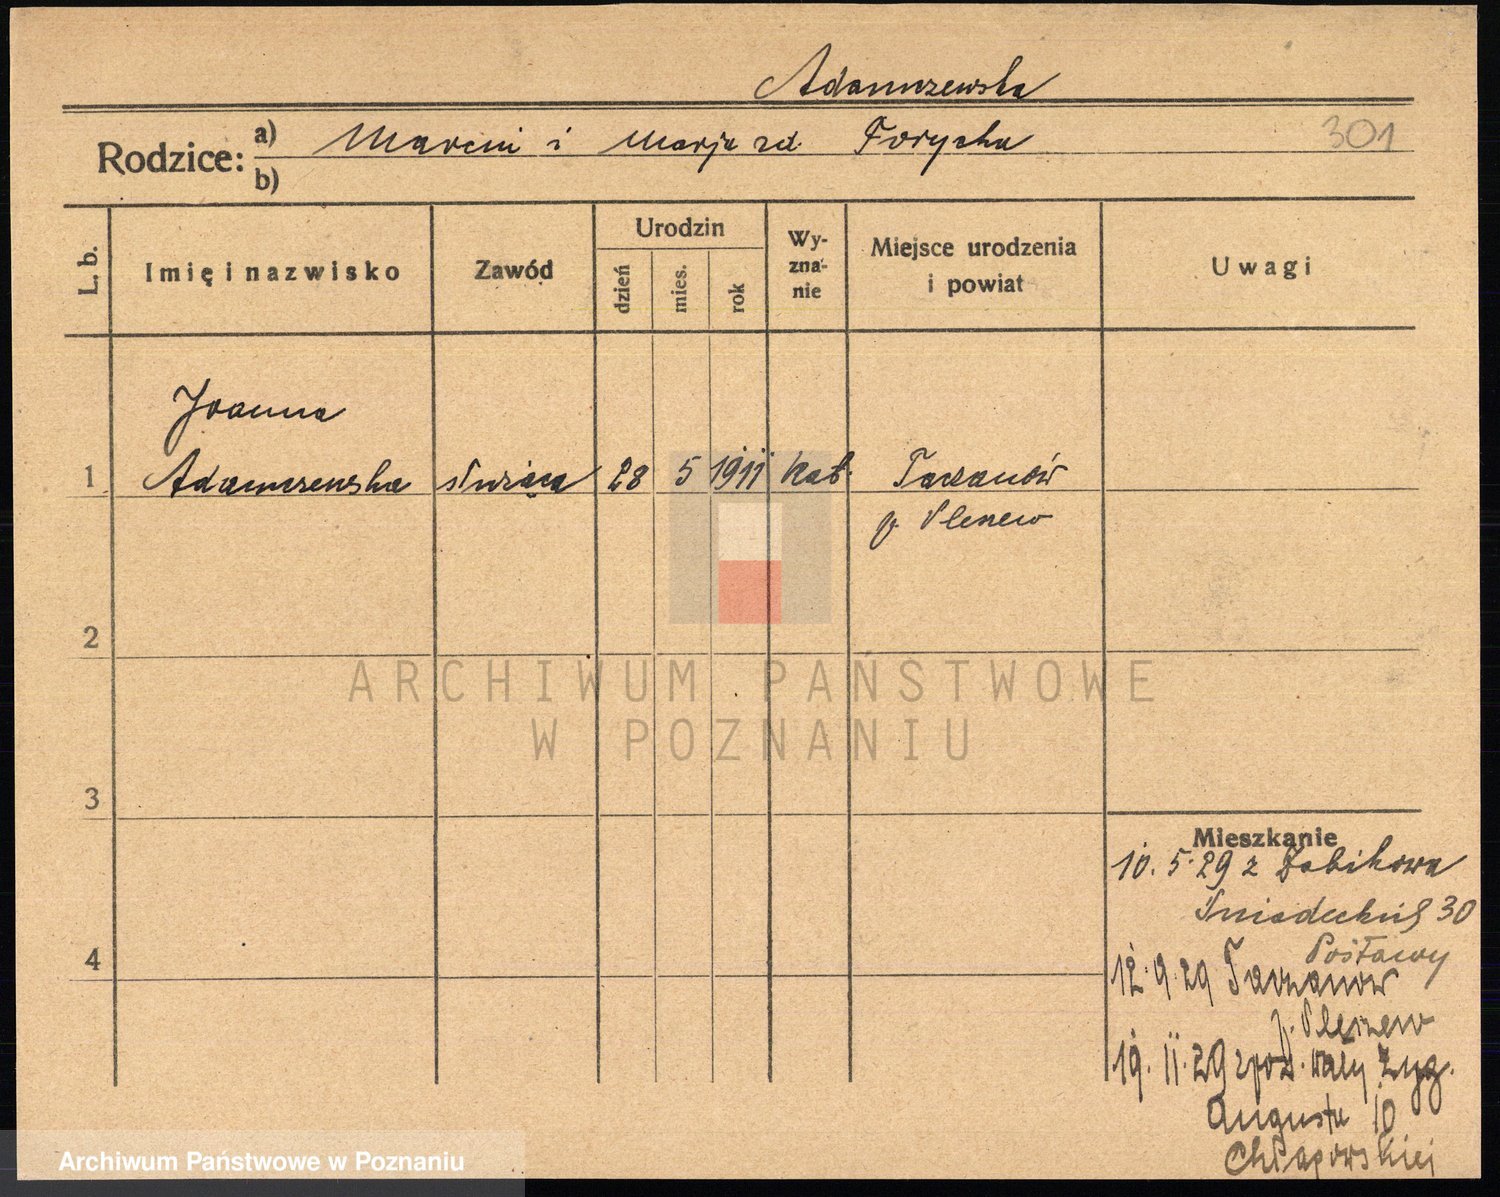 Adamczewska
Rodzice: a) Marcin i Marja zd. Forycka
301
b)
L. b.
Imię i nazwisko
Zawód
Urodzin
dzień
mies.
rok
Wy-
zna-
nie
Miejsce urodzenia
i powiat
Uwagi
Joanna
1 Adamczewska służąca 28 5 1911 kat. Taczanów
p. Pleszew
2
3
4
ARCHIWUM PAŃSTWOWE
W POZNANIU
Mieszkanie
10.5.29 z Żabikowa
Śniadeckich 30
12.9.29 Taczanów
p. Pleszew
19.11.29 z poz. Wały Zyg.
Augusta 10
Chłapowskiej
Archiwum Państwowe w Poznaniu